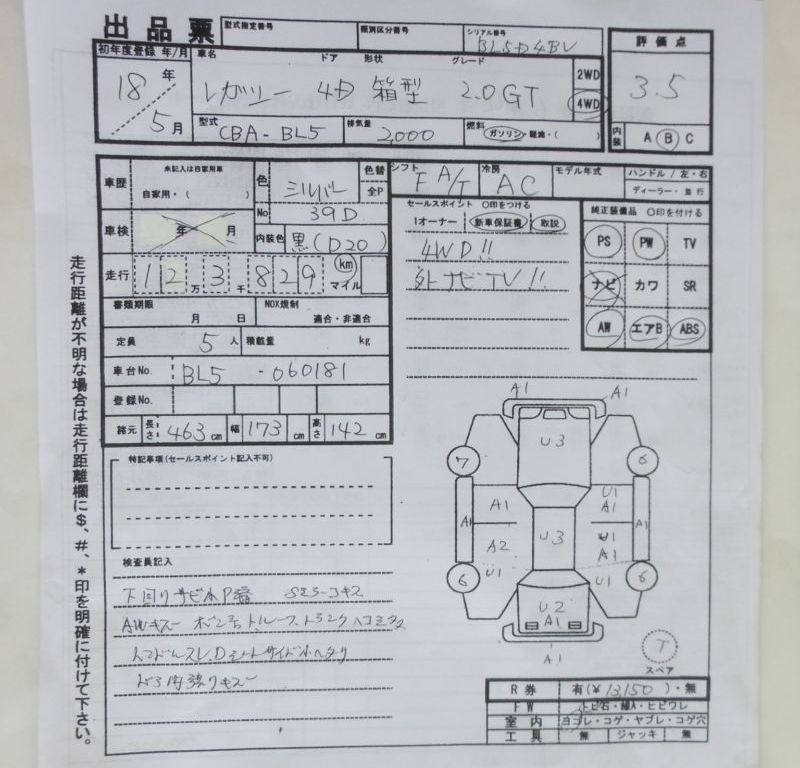 出品票
型式指定番号 類別区分番号 シリアル番号
BL5D4BV
初年度登録 年/月 車名 ドア 形状 グレード
18年 レガシー 4D 箱型 2.0GT 2WD
4WD
5月
型式 CBA-BL5 排気量 2,000 燃料 ガソリン・軽油・( )
評価点
3.5
内装 A B C
車歴 未記入は自家用車
自家用・( )
色 シルバー 色替 全P
No 39D
車検 年 月 内装色 黒(D20)
走行 12万3千829 km マイル
書類期限 月 日 NOX規制 適合・非適合
定員 5人 積載量 kg
車台No. BL5 -060181
登録No.
諸元 長さ 463cm 幅 173cm 高さ 142cm
シフト FA/T 冷房 AC モデル年式 ハンドル/左・右
ディーラー・並行
セールスポイント ○印をつける
1オーナー 新車保証書 取説
4WD!!
外ナビTV!!
純正装備品 ○印を付ける
PS PW TV
ナビ カワ SR
AW エアB ABS
走行距離が不明な場合は走行距離欄に$、#、*印を明確に付けて下さい。
特記事項(セールスポイント記入不可)
検査員記入
下回りサビ
AWキズ ボンネットルーフ
Dシートサイド小ヘタリ
ドア内張りキズ
A1 A1
U3
7 6
A1 U1
A1
A1 U3 A1
A2 U1
A1
U1 U1
6 6
U2
A1
A1
T
スペア
R券 有(¥13,150)・無
FW トビ石・線A・ヒビワレ
室内 ヨゴレ・コゲ・ヤブレ・コゲ穴
工具 無 ジャッキ 無